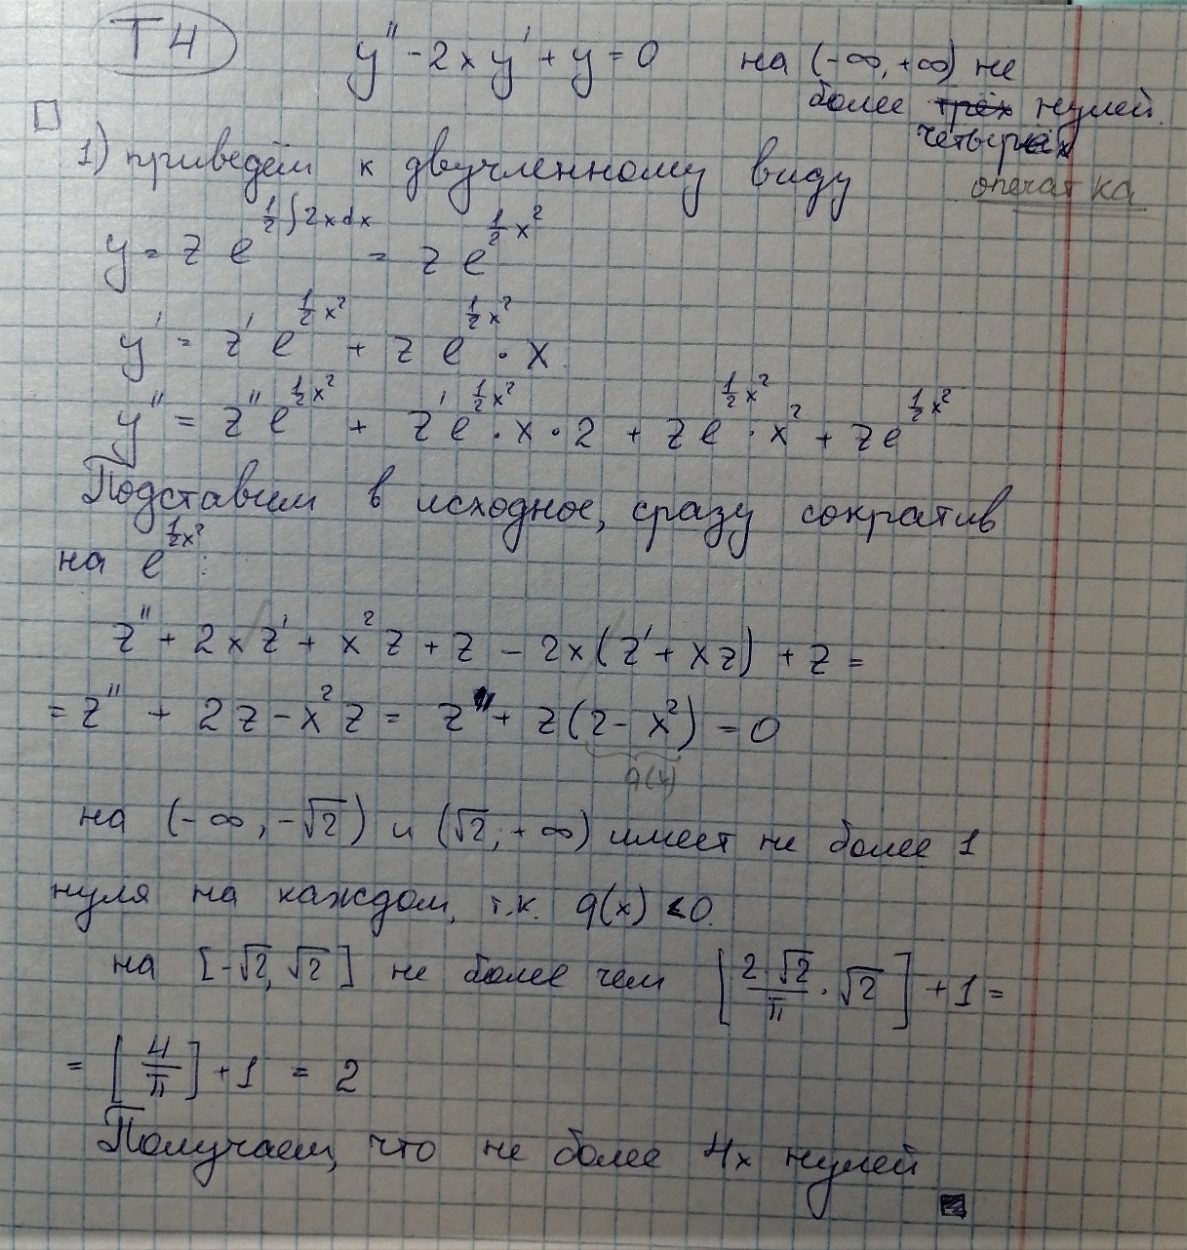 Т4
y'' - 2xy' + y = 0 на (-∞, +∞) не
более трёх нулей.
четырёх
опечатка
1) приведём к двучленному виду
y = z e^{\frac{1}{2}∫2xdx} = z e^{\frac{1}{2}x^2}
y' = z' e^{\frac{1}{2}x^2} + z e^{\frac{1}{2}x^2} · x
y'' = z'' e^{\frac{1}{2}x^2} + z' e^{\frac{1}{2}x^2} · x · 2 + z e^{\frac{1}{2}x^2} · x^2 + z e^{\frac{1}{2}x^2}
Подставим в исходное, сразу сократив
на e^{\frac{1}{2}x^2}:
z'' + 2xz' + x^2 z + z - 2x(z' + xz) + z =
= z'' + 2z - x^2 z = z'' + z(2 - x^2) = 0
q(x)
на (-∞, -√2) и (√2, +∞) имеет не более 1
нуля на каждом, т.к. q(x) < 0.
на [-√2, √2] не более чем [\frac{2√2}{π} · √2] + 1 =
= [\frac{4}{π}] + 1 = 2
Получаем, что не более 4х нулей